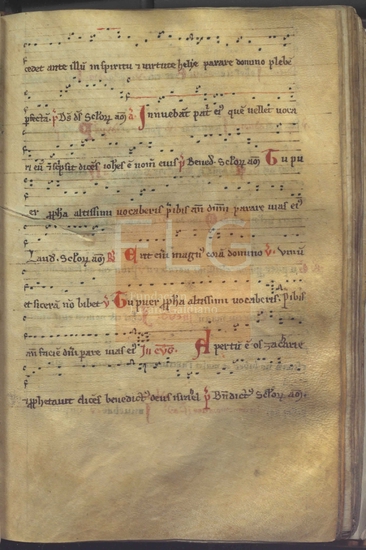 cedet ante illū in spiritu ⁊ virtute helie parare domino plebē
pfectā. p̄ Bn̄ dn̄s Sclor̄ aō a Innuebāt pat' eꝰ quē vellet voca
ri eū ⁊ scpsit dicēs iohēs ē nom̄ eius p̄ Bened. Sclor̄ aō Tu pu
er ꝓpha altissimi vocaberis p̄ibis an̄ dn̄m parare vias eiꝰ
Laud. Sclor̄ aō R Erit eni magnꝰ corā domino v. Vinū
et sicerā nō bibet v Tu puer ꝓpha altissimi vocaberis. p̄ibis
an̄ faciē dn̄i pare vias eꝰ In evg. Apertū ē os zacharie
⁊ ꝓphetavit dicēs benedictꝰ deus isrl p̄ Bn̄dictꝰ Sclor̄ aō.
FLG